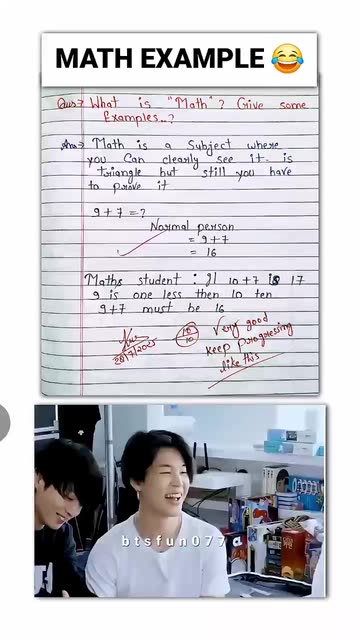 MATH EXAMPLE 😂
Qus→ What is "Math"? Give some
Examples..?
Ans→ Math is a Subject where
you can clearly see it is
triangle but still you have
to prove it
9+7=?
Normal person
= 9+7
= 16
Maths student : If 10+7 is 17
9 is one less then 10 ten
9+7 must be 16
28/7/2025
10/10
Very good
keep progressing
like this
btsfun077a